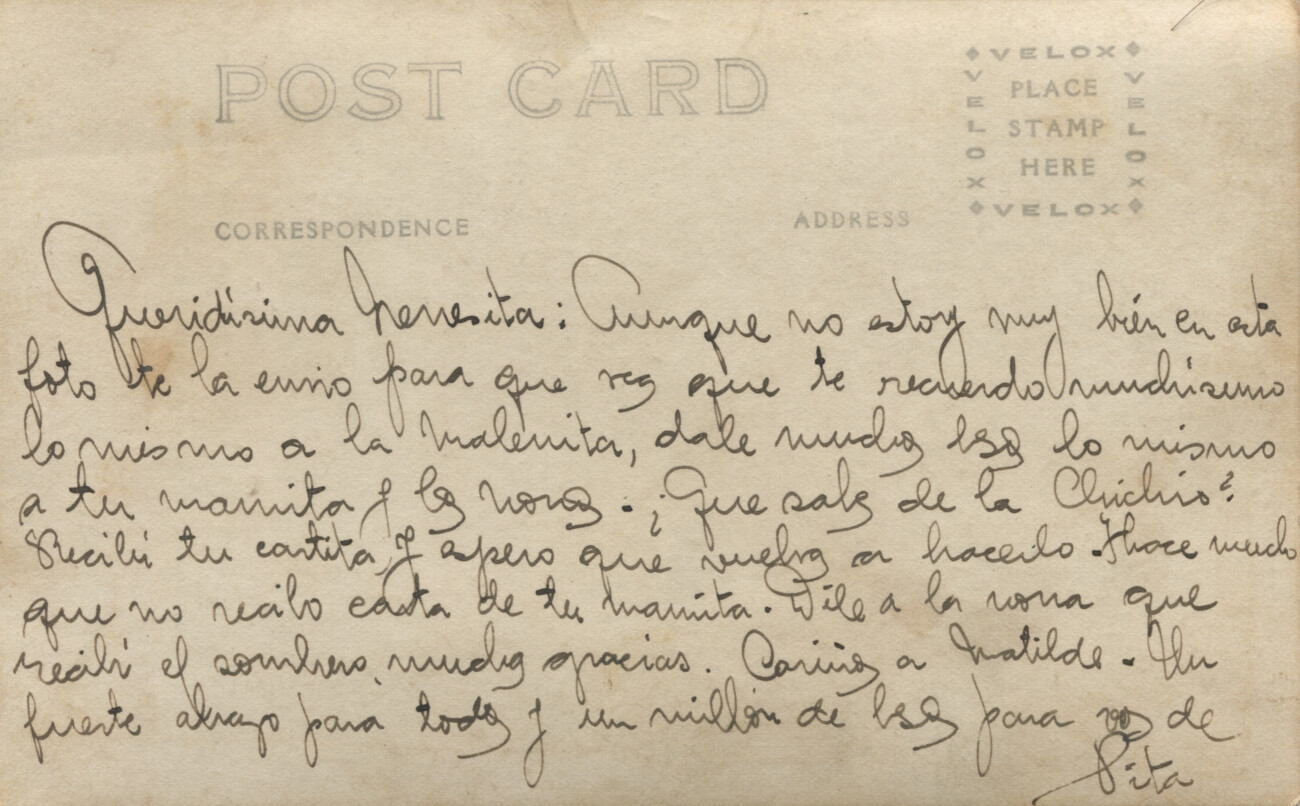 POST CARD
VELOX
VELOX
PLACE
STAMP
HERE
VELOX
VELOX
CORRESPONDENCE
ADDRESS
Queridísima Nenesita: Aunque no estoy muy bién en esta
foto te la envio para que veas que te recuerdo muchísimo
lo mismo a la Malenita, dale muchos besos lo mismo
a tu mamita y los nonos. ¿Que sabes de la Chichio?
Recibí tu cartita y espero que vuelvas a hacerlo. Hace mucho
que no recibo carta de tu mamita. Dile a la nona que
recibí el sombrero, muchas gracias. Cariños a Matilde. Un
fuerte abrazo para todos y un millón de besos para vos de
Pita